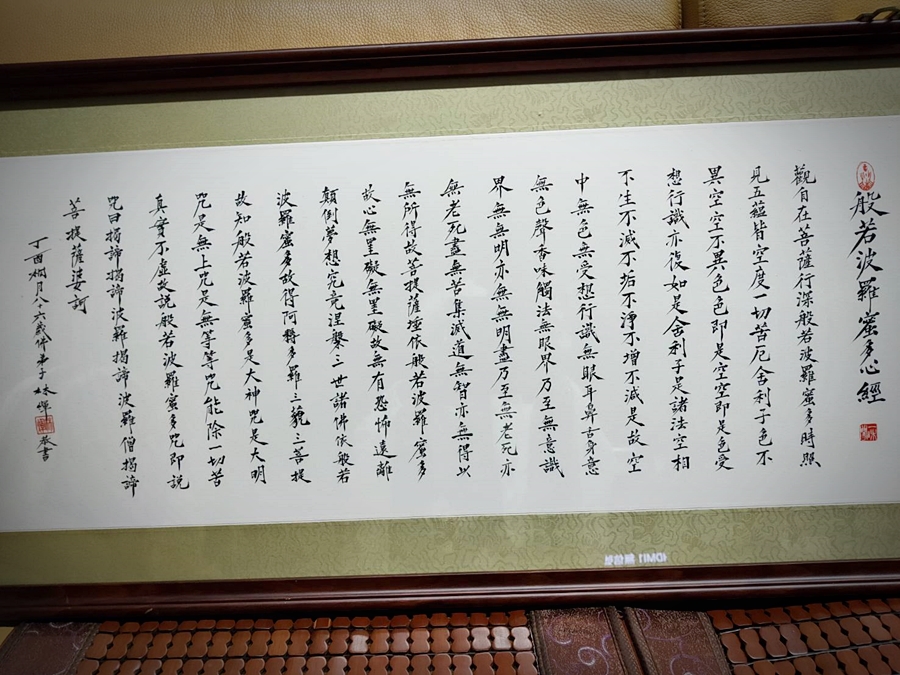 般若波羅蜜多心經
觀自在菩薩行深般若波羅蜜多時照
見五蘊皆空度一切苦厄舍利子色不
異空空不異色色即是空空即是色受
想行識亦復如是舍利子是諸法空相
不生不滅不垢不淨不增不減是故空
中無色無受想行識無眼耳鼻舌身意
無色聲香味觸法無眼界乃至無意識
界無無明亦無無明盡乃至無老死亦
無老死盡無苦集滅道無智亦無得以
無所得故菩提薩埵依般若波羅蜜多
故心無罣礙無罣礙故無有恐怖遠離
顛倒夢想究竟涅槃三世諸佛依般若
波羅蜜多故得阿耨多羅三藐三菩提
故知般若波羅蜜多是大神咒是大明
咒是無上咒是無等等咒能除一切苦
真實不虛故說般若波羅蜜多咒即說
咒曰揭諦揭諦波羅揭諦波羅僧揭諦
菩提薩婆訶
丁酉桐月八十六歲佛弟子林 敬書